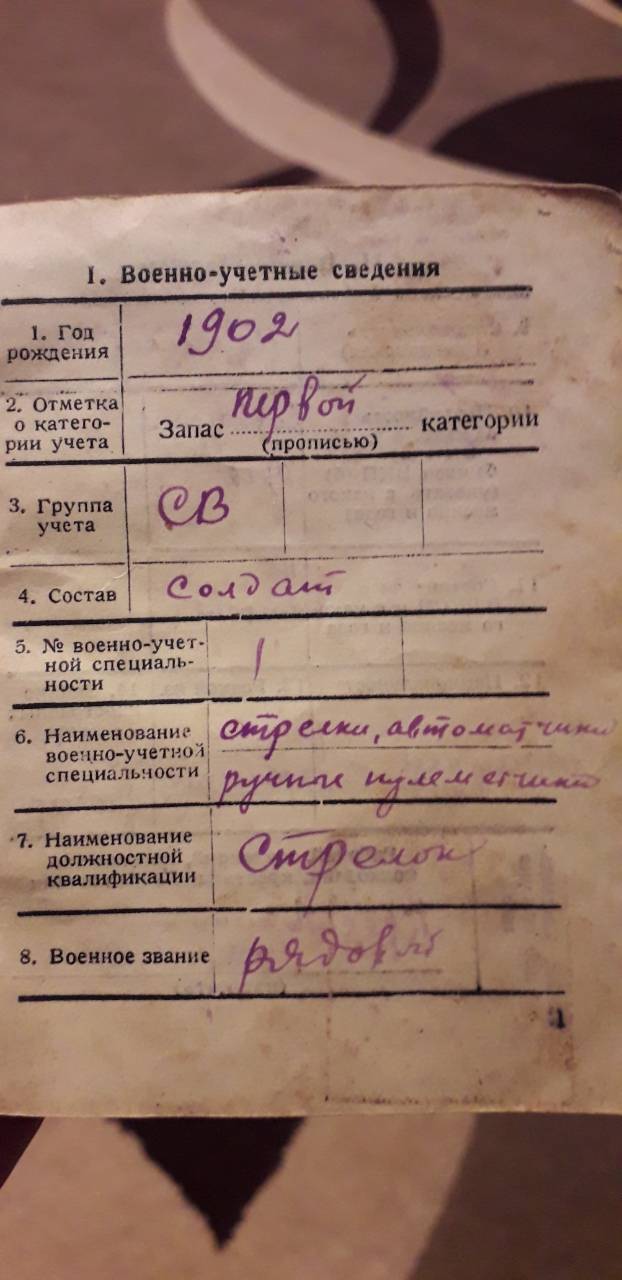 I. Военно-учетные сведения
1. Год
рождения
1902
2. Отметка
о катего-
рии учета
первой
Запас .................. категории
(прописью)
3. Группа
учета
СВ
4. Состав
солдат
5. № военно-учет-
ной специаль-
ности
1
6. Наименование
военно-учетной
специальности
стрелки, автоматчики
ручные пулеметчики
7. Наименование
должностной
квалификации
Стрелок
8. Военное звание
рядовой